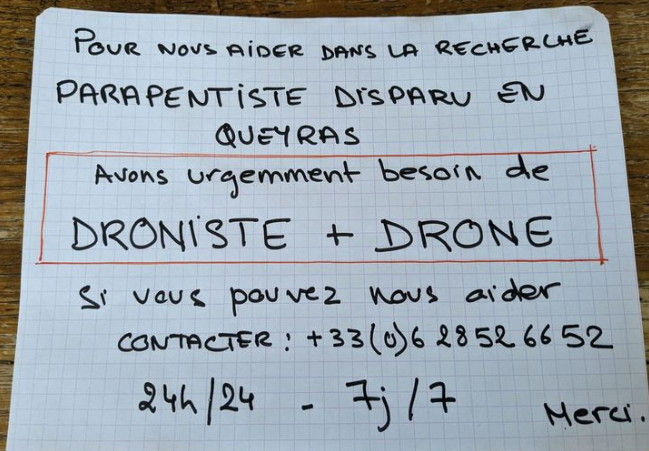 POUR NOUS AIDER DANS LA RECHERCHE
PARAPENTISTE DISPARU EN
QUEYRAS
Avons urgemment besoin de
DRONISTE + DRONE
Si vous pouvez nous aider
CONTACTER : +33(0)6 28 52 66 52
24h/24 - 7j/7
Merci.